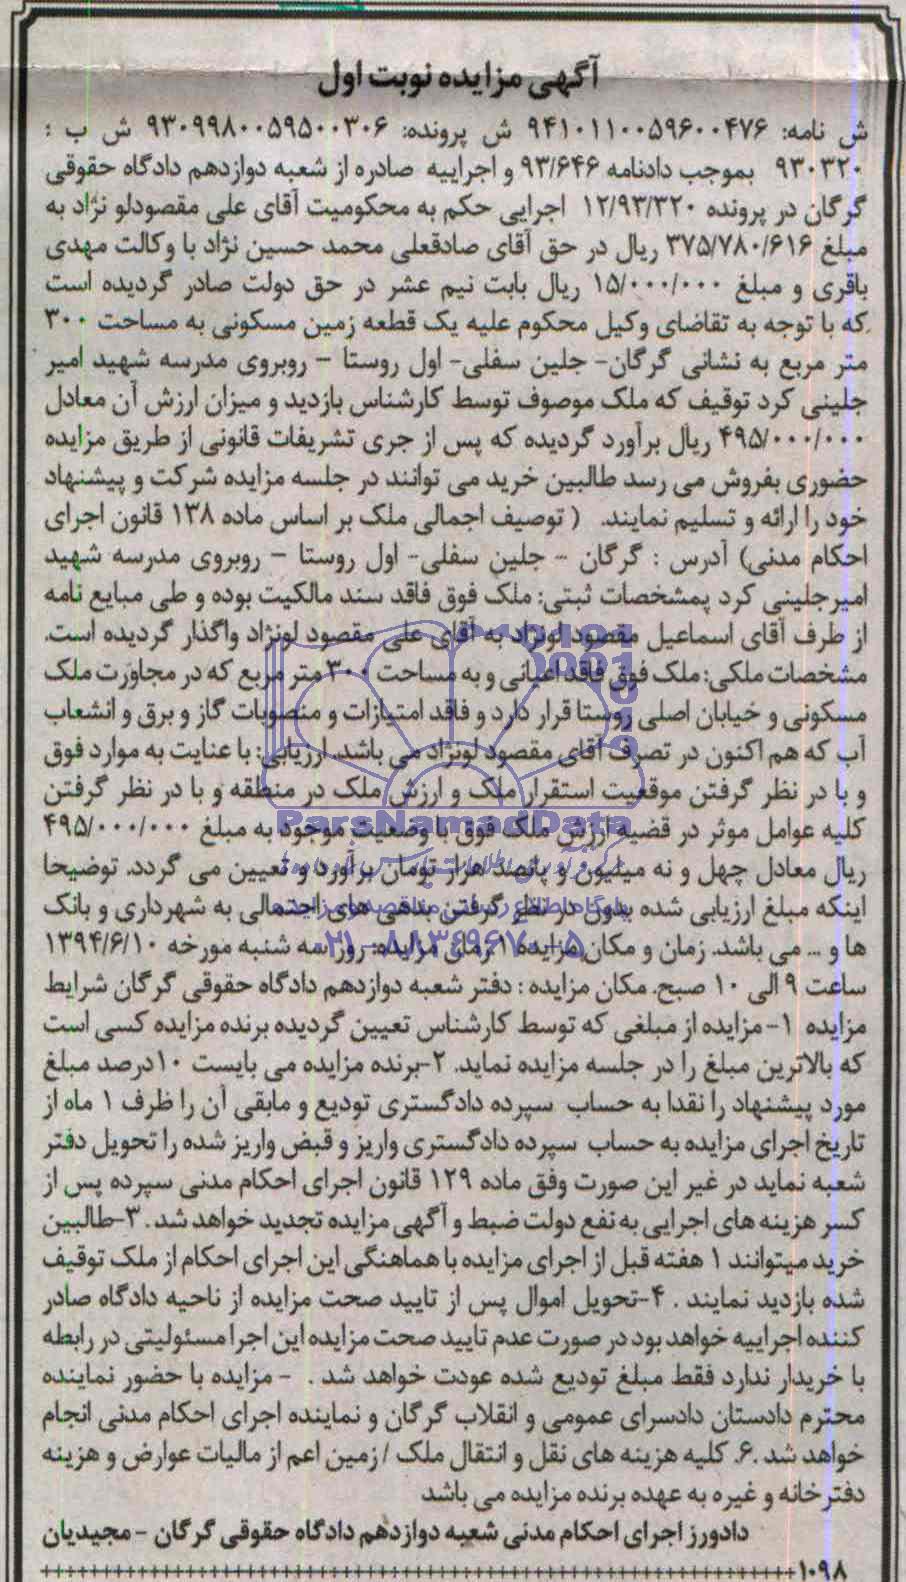 آگهی مزایده نوبت اول
ش نامه: ۹۴۱۰۱۱۰۰۵۹۶۰۰۴۷۶ ش پرونده: ۹۳۰۹۹۸۰۰۵۹۵۰۰۳۰۶ ش ب :
۹۳۰۳۲۰ بموجب دادنامه ۹۳/۶۴۶ و اجراییه صادره از شعبه دوازدهم دادگاه حقوقی
گرگان در پرونده ۱۲/۹۳/۳۲۰ اجرایی حکم به محکومیت آقای علی مقصودلو نژاد به
مبلغ ۳۷۵/۷۸۰/۶۱۶ ریال در حق آقای صادقعلی محمد حسین نژاد با وکالت مهدی
باقری و مبلغ ۱۵/۰۰۰/۰۰۰ ریال بابت نیم عشر در حق دولت صادر گردیده است
که با توجه به تقاضای وکیل محکوم علیه یک قطعه زمین مسکونی به مساحت ۳۰۰
متر مربع به نشانی گرگان- جلین سفلی- اول روستا – روبروی مدرسه شهید امیر
جلینی کرد توقیف که ملک موصوف توسط کارشناس بازدید و میزان ارزش آن معادل
۴۹۵/۰۰۰/۰۰۰ ریال برآورد گردیده که پس از جری تشریفات قانونی از طریق مزایده
حضوری بفروش می رسد طالبین خرید می توانند در جلسه مزایده شرکت و پیشنهاد
خود را ارائه و تسلیم نمایند. ( توصیف اجمالی ملک بر اساس ماده ۱۳۸ قانون اجرای
احکام مدنی) آدرس : گرگان – جلین سفلی- اول روستا – روبروی مدرسه شهید
امیرجلینی کرد پمشخصات ثبتی: ملک فوق فاقد سند مالکیت بوده و طی مبایع نامه
از طرف آقای اسماعیل مقصود لونژاد به آقای علی مقصود لونژاد واگذار گردیده است.
مشخصات ملکی: ملک فوق فاقد اعیانی و به مساحت ۳۰۰ متر مربع که در مجاورت ملک
مسکونی و خیابان اصلی روستا قرار دارد و فاقد امتیازات و منصوبات گاز و برق و انشعاب
آب که هم اکنون در تصرف آقای مقصود لونژاد می باشد. ارزیابی: با عنایت به موارد فوق
و با در نظر گرفتن موقعیت استقرار ملک و ارزش ملک در منطقه و با در نظر گرفتن
ParsNamadData
کلیه عوامل موثر در قضیه ارزش ملک فوق با وضعیت موجود به مبلغ ۴۹۵/۰۰۰/۰۰۰
ریال معادل چهل و نه میلیون و پانصد هزار تومان برآورد و تعیین می گردد. توضیحا
اینکه مبلغ ارزیابی شده بدون در نظر گرفتن بدهی های احتمالی به شهرداری و بانک
ها و ... می باشد. زمان و مکان مزایده ۱ زمان مزایده: روز سه شنبه مورخه ۱۳۹۴/۶/۱۰
۰۲۱-۸۸۳۴۹۶۷۰-۵
ساعت ۹ الی ۱۰ صبح. مکان مزایده : دفتر شعبه دوازدهم دادگاه حقوقی گرگان شرایط
مزایده ۱- مزایده از مبلغی که توسط کارشناس تعیین گردیده برنده مزایده کسی است
که بالاترین مبلغ را در جلسه مزایده نماید. ۲-برنده مزایده می بایست ۱۰درصد مبلغ
مورد پیشنهاد را نقدا به حساب سپرده دادگستری تودیع و مابقی آن را ظرف ۱ ماه از
تاریخ اجرای مزایده به حساب سپرده دادگستری واریز و قبض واریز شده را تحویل دفتر
شعبه نماید در غیر این صورت وفق ماده ۱۲۹ قانون اجرای احکام مدنی سپرده پس از
کسر هزینه های اجرایی به نفع دولت ضبط و آگهی مزایده تجدید خواهد شد . ۳-طالبین
خرید میتوانند ۱ هفته قبل از اجرای مزایده با هماهنگی این اجرای احکام از ملک توقیف
شده بازدید نمایند . ۴-تحویل اموال پس از تایید صحت مزایده از ناحیه دادگاه صادر
کننده اجراییه خواهد بود در صورت عدم تایید صحت مزایده این اجرا مسئولیتی در رابطه
با خریدار ندارد فقط مبلغ تودیع شده عودت خواهد شد . - مزایده با حضور نماینده
محترم دادستان دادسرای عمومی و انقلاب گرگان و نماینده اجرای احکام مدنی انجام
خواهد شد .۶. کلیه هزینه های نقل و انتقال ملک /زمین اعم از مالیات عوارض و هزینه
دفترخانه و غیره به عهده برنده مزایده می باشد
دادورز اجرای احکام مدنی شعبه دوازدهم دادگاه حقوقی گرگان – مجیدیان
۱۰۹۸